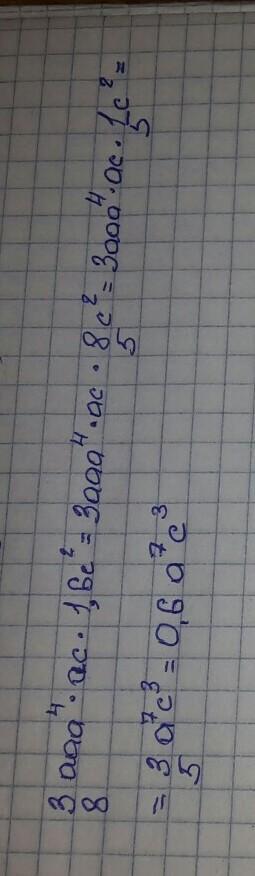 3/8 aaa⁴ · ac · 1,6c² = 3aaa⁴ · ac · 8/5 c² = 3aaa⁴ · ac · 1/5 c² =
= 3/5 a⁷c³ = 0,6 a⁷c³